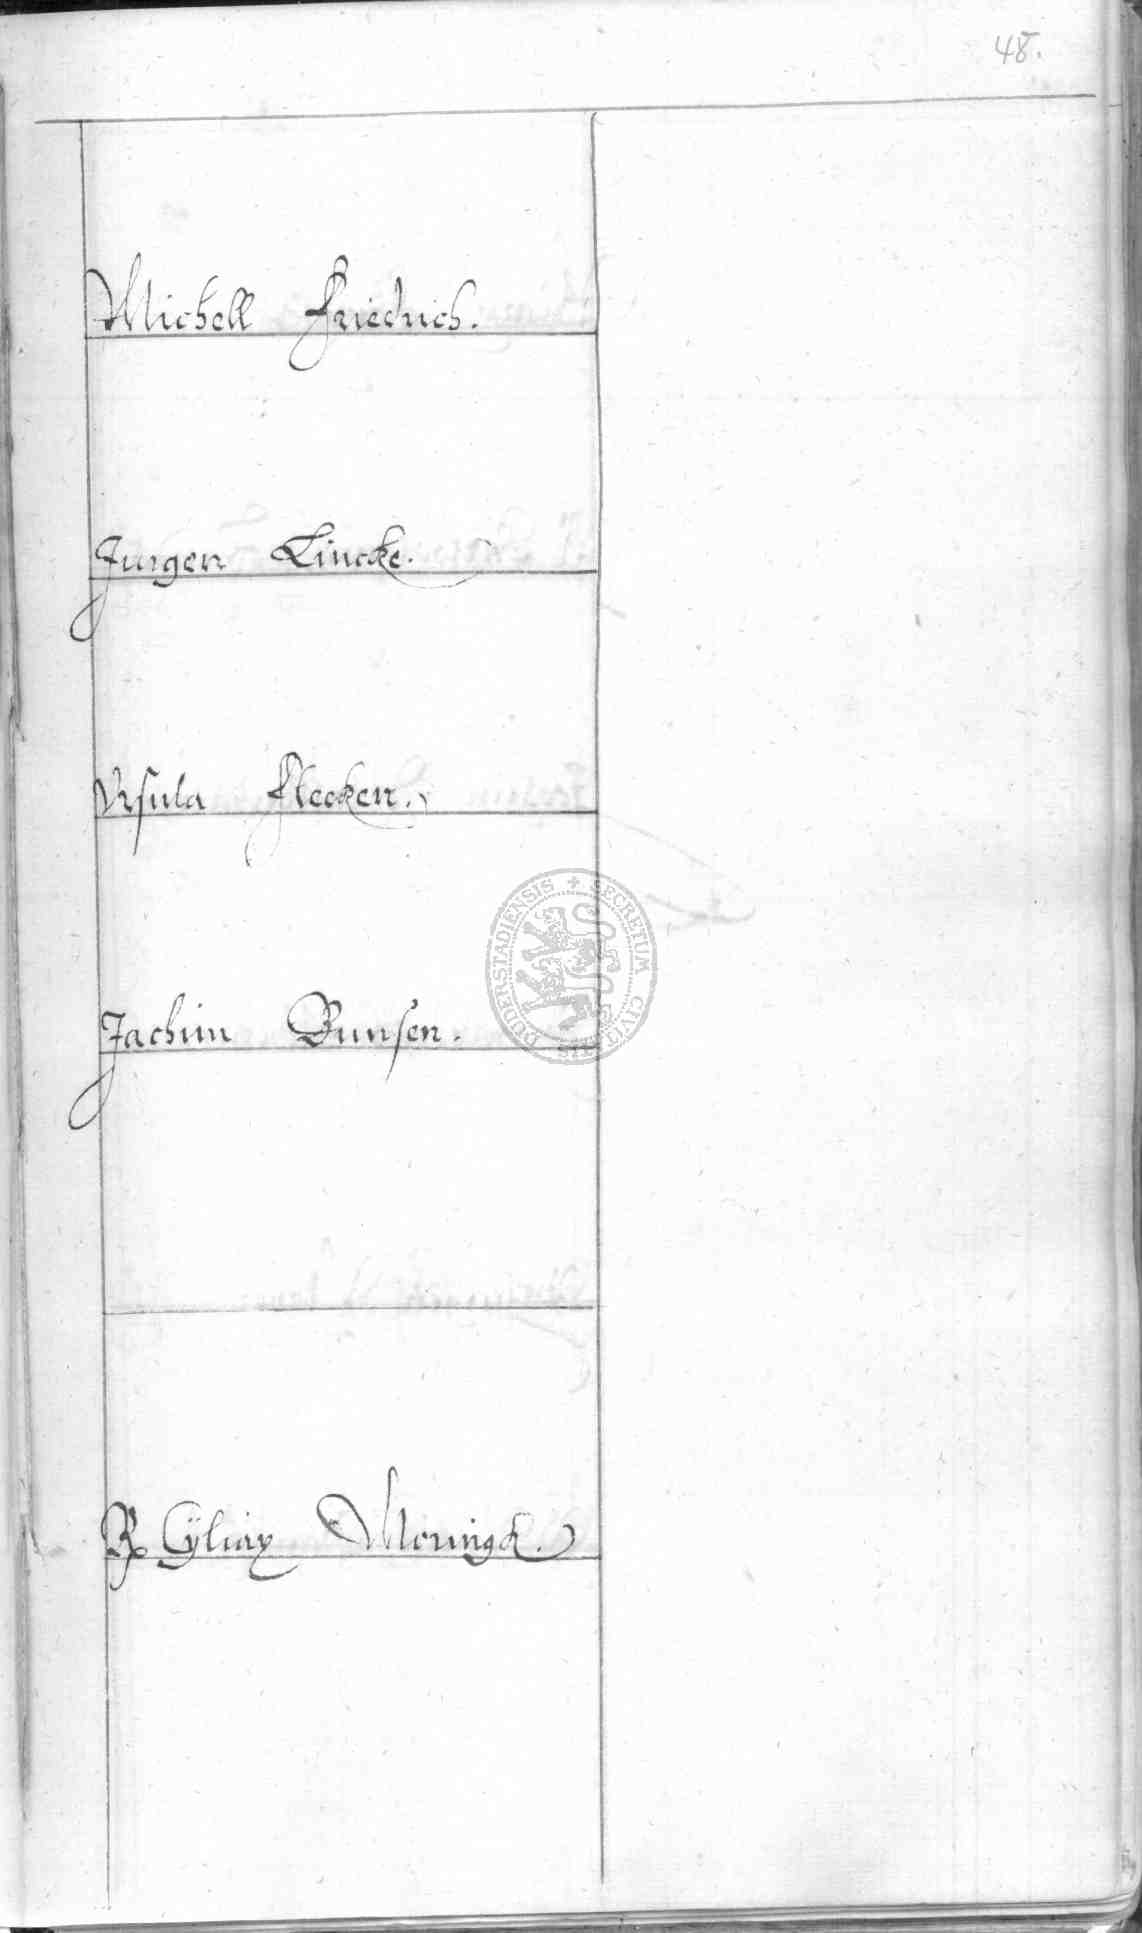 48.
Michell Friedrich.
Jurgen Lincke.
Vrsula Flecken.
Jachim Bunsen.
SECRETUM CIVITATIS DUDERSTADIENSIS
Moringk.